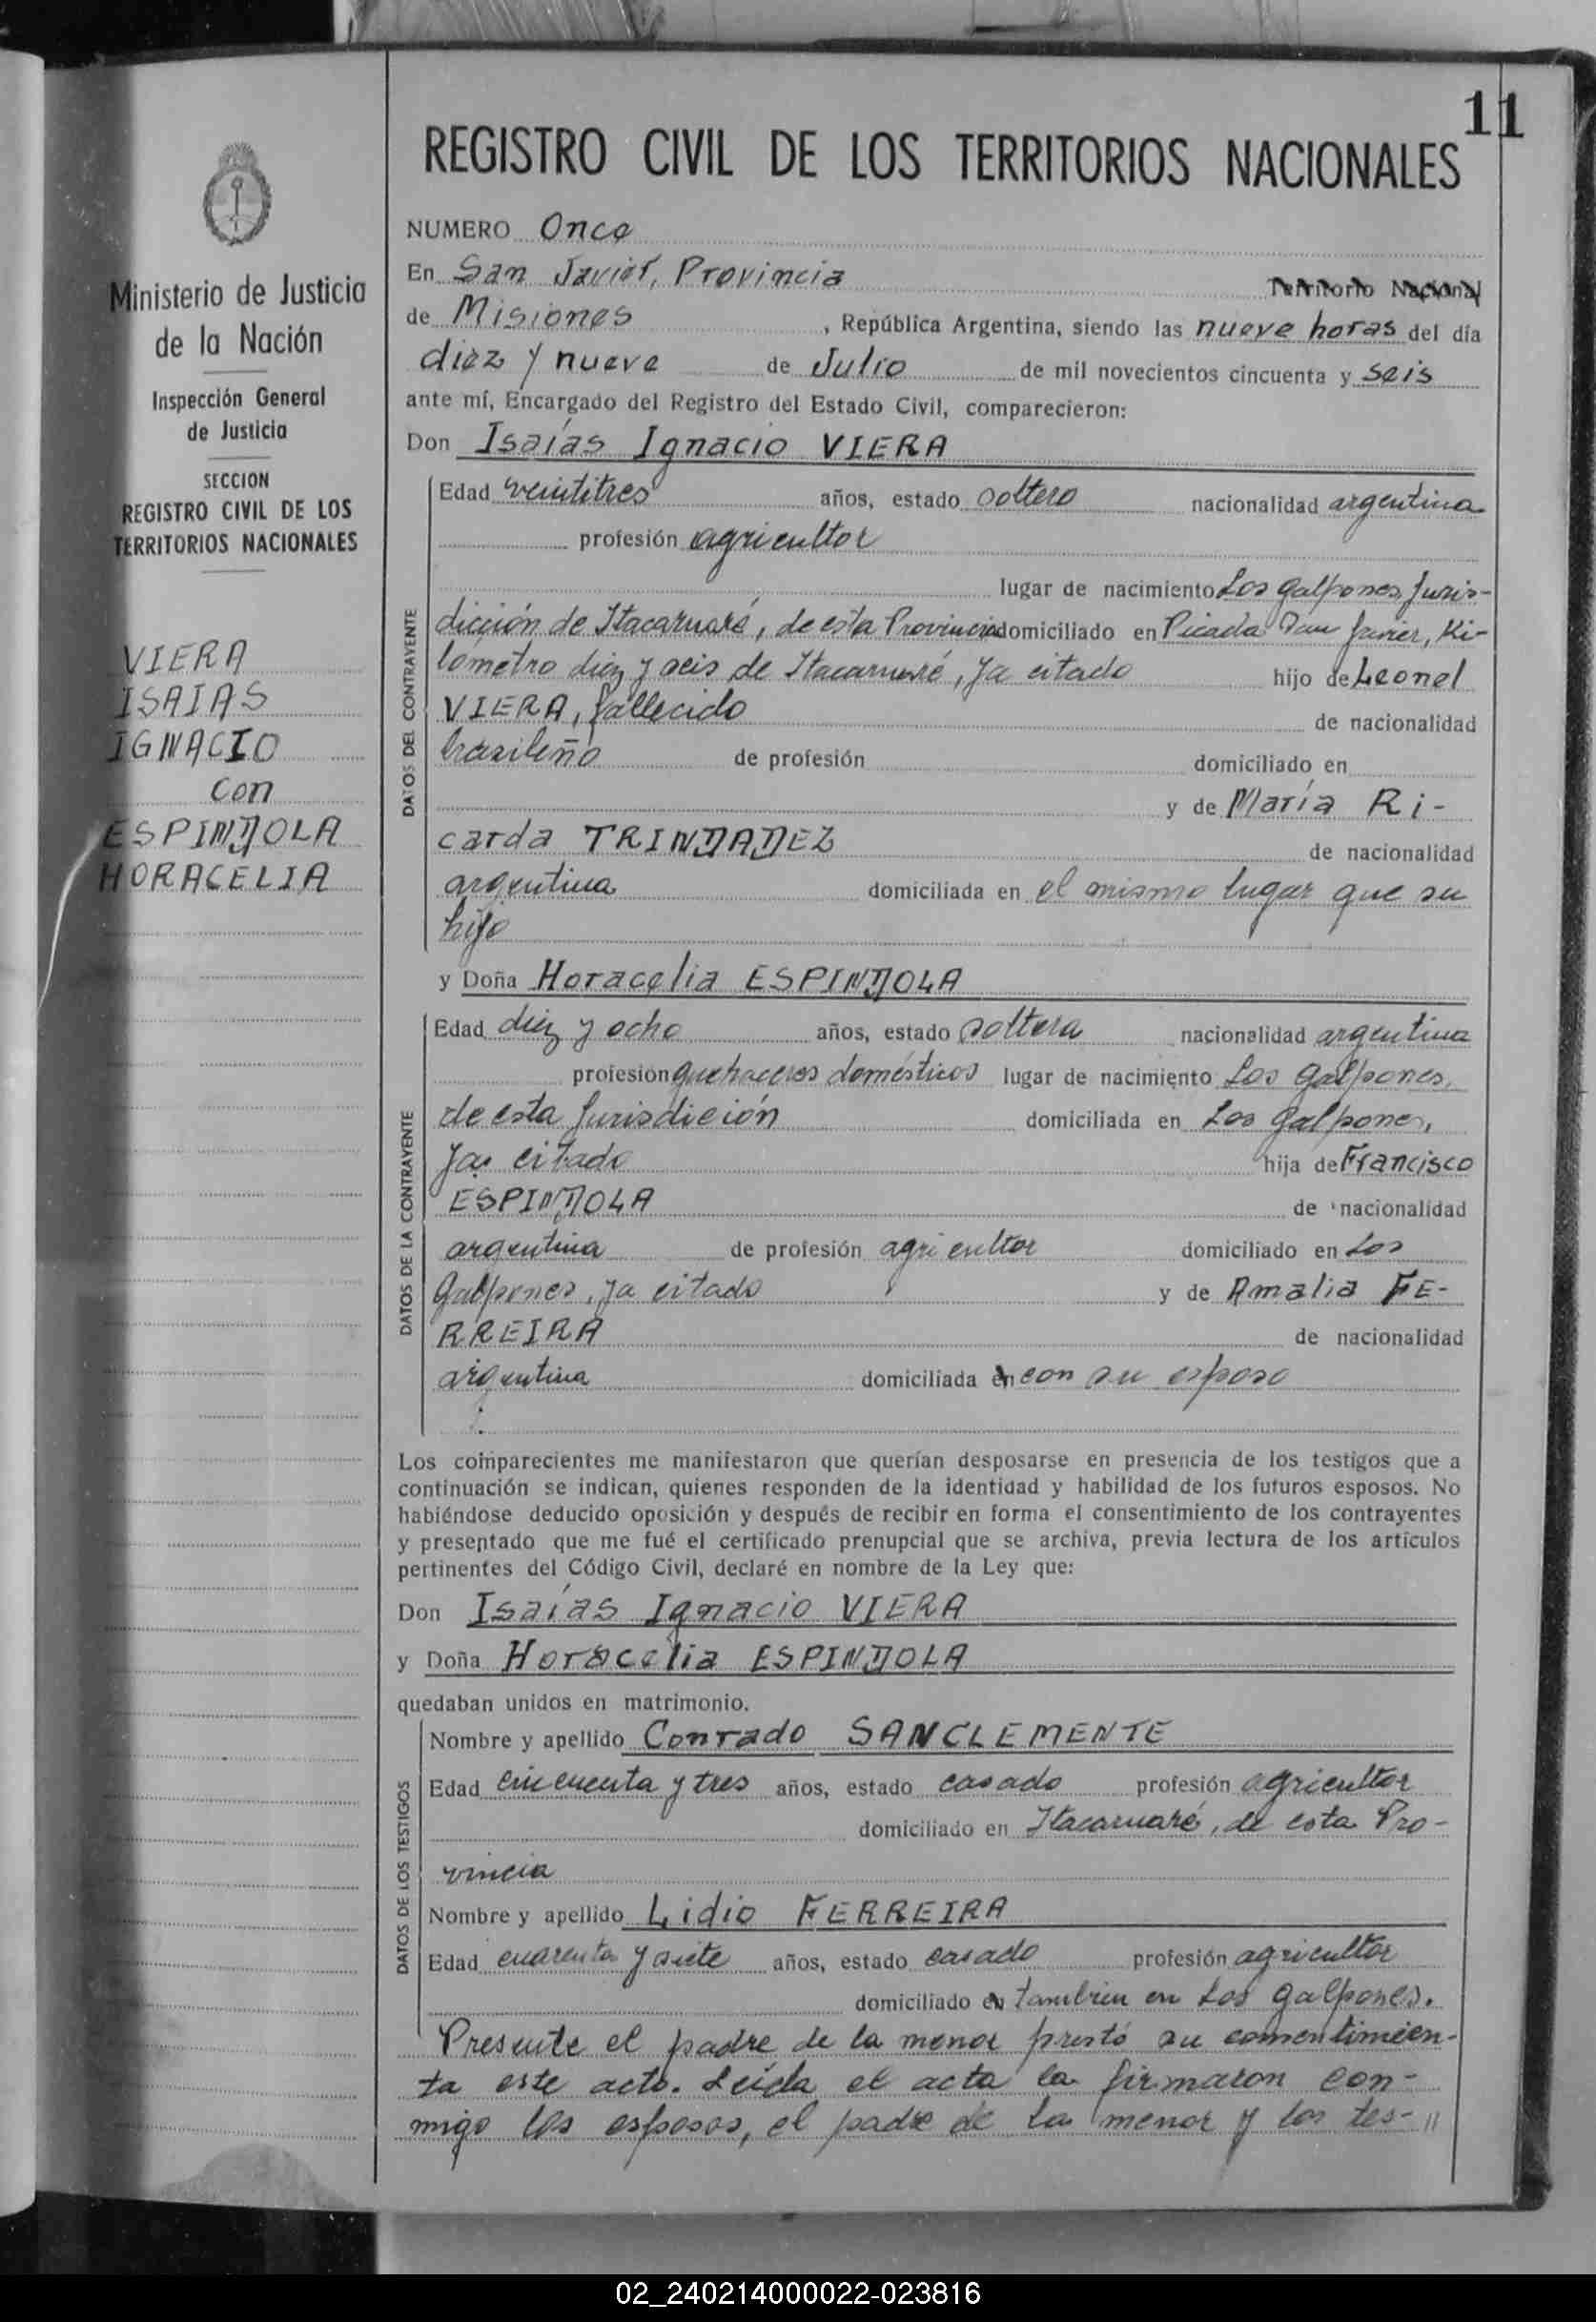 11
REGISTRO CIVIL DE LOS TERRITORIOS NACIONALES
Ministerio de Justicia
de la Nación
Inspección General
de Justicia
SECCION
REGISTRO CIVIL DE LOS
TERRITORIOS NACIONALES
VIERA
ISAIAS
IGNACIO
con
ESPINDOLA
HORACELIA
NUMERO Once
En San Javier, Provincia Territorio Nacional
de Misiones, República Argentina, siendo las nueve horas del día
diez y nueve de Julio de mil novecientos cincuenta y seis
ante mí, Encargado del Registro del Estado Civil, comparecieron:
Don Isaías Ignacio VIERA
DATOS DEL CONTRAYENTE
Edad veintitres años, estado soltero nacionalidad argentina
profesión agricultor
lugar de nacimiento Los Galpones, Juris-
dicción de Itacaruaré, de esta Provincia domiciliado en Picada San Javier, Ki-
lometro diez y seis de Itacaruaré, ya citado hijo de Leonel
VIERA, fallecido de nacionalidad
brasileño de profesión domiciliado en
y de María Ri-
carda TRINDADEZ de nacionalidad
argentina domiciliada en el mismo lugar que su
hijo
y Doña Horacelia ESPINDOLA
DATOS DE LA CONTRAYENTE
Edad diez y ocho años, estado soltera nacionalidad argentina
profesion quehaceres domésticos lugar de nacimiento Los Galpones,
de esta Jurisdición domiciliada en Los Galpones,
ya citado hija de Francisco
ESPINDOLA de nacionalidad
argentina de profesión agricultor domiciliado en Los
Galpones, ya citado y de Amalia FE-
RREIRA de nacionalidad
argentina domiciliada en con su esposo
Los comparecientes me manifestaron que querían desposarse en presencia de los testigos que a
continuación se indican, quienes responden de la identidad y habilidad de los futuros esposos. No
habiéndose deducido oposición y después de recibir en forma el consentimiento de los contrayentes
y presentado que me fué el certificado prenupcial que se archiva, previa lectura de los artículos
pertinentes del Código Civil, declaré en nombre de la Ley que:
Don Isaías Ignacio VIERA
y Doña Horacelia ESPINDOLA
quedaban unidos en matrimonio.
DATOS DE LOS TESTIGOS
Nombre y apellido Conrado SANCLEMENTE
Edad cincuenta y tres años, estado casado profesión agricultor
domiciliado en Itacaruaré, de esta Pro-
vincia
Nombre y apellido Lidio FERREIRA
Edad cuarenta y siete años, estado casado profesión agricultor
domiciliado en tambien en Los Galpones.
Presente el padre de la menor prestó su consentimien-
ta este acto. Leída el acta la firmaron con-
migo los esposos, el padre de la menor y los tes- //
02_240214000022-023816